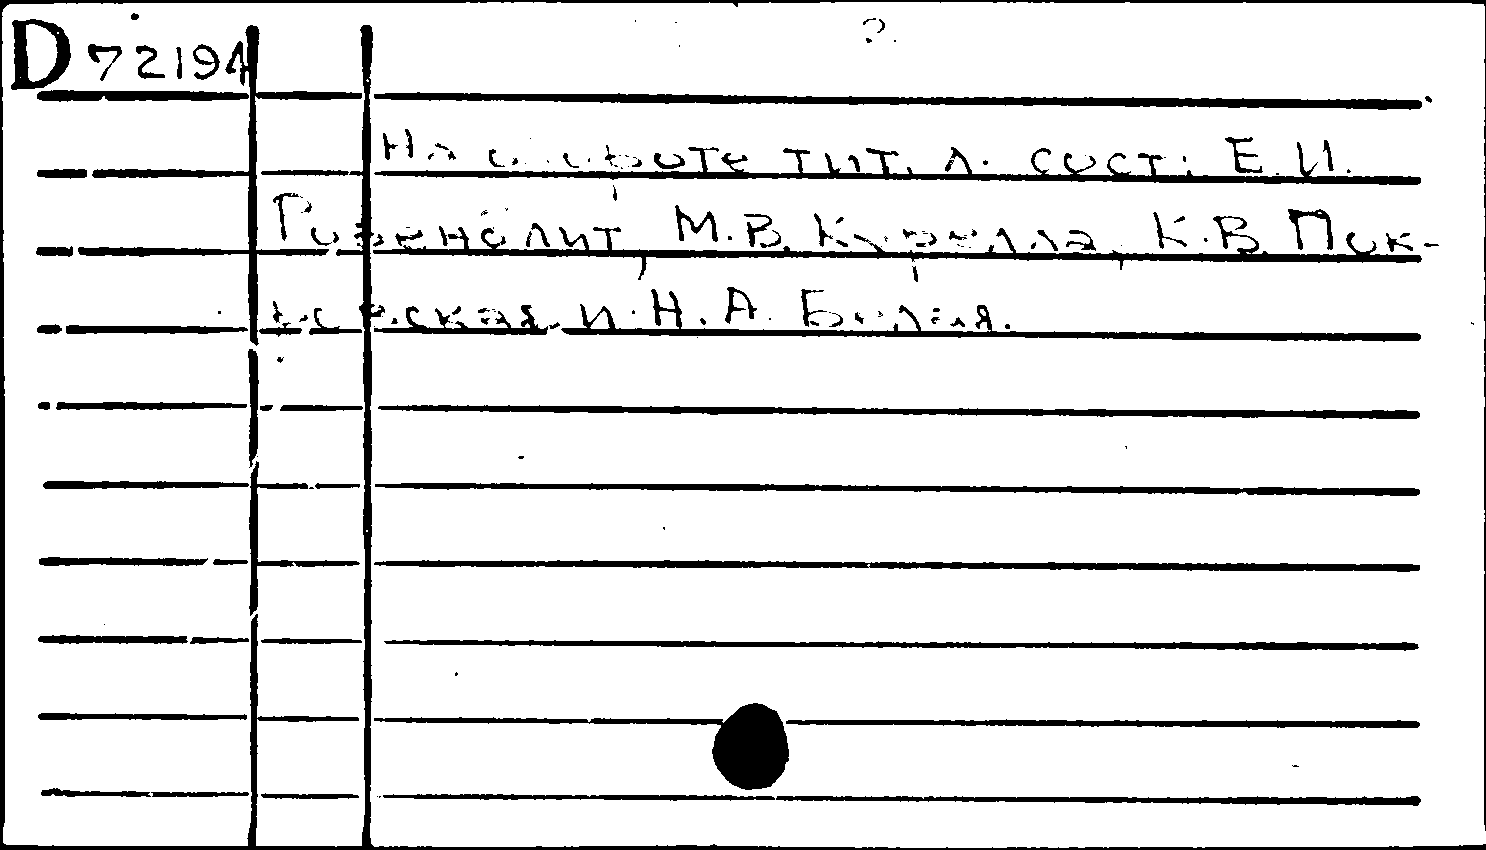 D 72194
2.
На обороте тит. л. сост: Е.И.
Розенблит, М.В. Курелла, К.В. Пок-
ровская и Н.А. Белая.